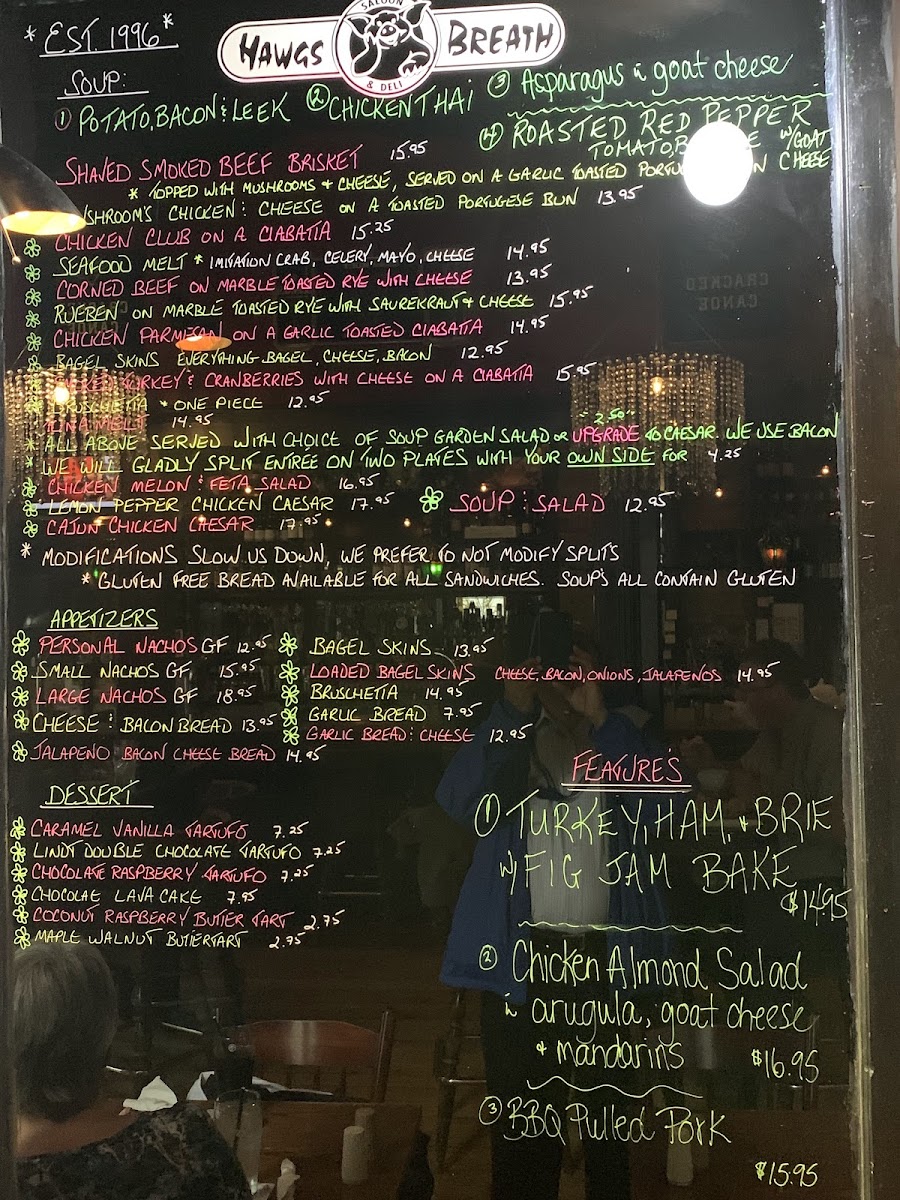 *EST. 1996*
HAWGS SALOON & DELI BREATH
SOUP:
① POTATO, BACON & LEEK ② CHICKEN THAI ③ Asparagus & goat cheese
④ ROASTED RED PEPPER
W/ GOAT CHEESE
SHAVED SMOKED BEEF BRISKET 15.95
* TOPPED WITH MUSHROOMS & CHEESE, SERVED ON A GARLIC TOASTED
CHICKEN & CHEESE ON A TOASTED PORTUGESE BUN 13.95
CHICKEN CLUB ON A CIABATTA 15.25
SEAFOOD MELT * IMITATION CRAB, CELERY, MAYO, CHEESE 14.95
CORNED BEEF ON MARBLE TOASTED RYE WITH CHEESE 13.95
RUEBEN ON MARBLE TOASTED RYE WITH SAUREKRAUT & CHEESE 15.95
CHICKEN PARMESAN ON A GARLIC TOASTED CIABATTA 14.95
BAGEL SKINS EVERYTHING BAGEL, CHEESE, BACON 12.95
TURKEY & CRANBERRIES WITH CHEESE ON A CIABATTA 15.95
BRUSCHETTA * ONE PIECE 12.95
TUNA MELT 14.95
"2.50"
* ALL ABOVE SERVED WITH CHOICE OF SOUP GARDEN SALAD OR UPGRADE TO CAESAR. WE USE BACON
* WE WILL GLADLY SPLIT ENTRÉE ON TWO PLATES WITH YOUR OWN SIDE FOR 4.25
CHICKEN MELON & FETA SALAD 16.95
LEMON PEPPER CHICKEN CAESAR 17.95
SOUP & SALAD 12.95
CAJUN CHICKEN CAESAR 17.95
* MODIFICATIONS SLOW US DOWN, WE PREFER TO NOT MODIFY SPLITS
* GLUTEN FREE BREAD AVAILABLE FOR ALL SANDWICHES. SOUP'S ALL CONTAIN GLUTEN
APPETIZERS
PERSONAL NACHOS GF 12.95
SMALL NACHOS GF 15.95
LARGE NACHOS GF 18.95
CHEESE & BACON BREAD 13.95
JALAPENO BACON CHEESE BREAD 14.95
BAGEL SKINS 13.95
LOADED BAGEL SKINS CHEESE, BACON, ONIONS, JALAPENOS 14.95
BRUSCHETTA 14.95
GARLIC BREAD 7.95
GARLIC BREAD & CHEESE 12.95
DESSERT
CARAMEL VANILLA TARTUFO 7.25
LINDT DOUBLE CHOCOLATE TARTUFO 7.25
CHOCOLATE RASPBERRY TARTUFO 7.25
CHOCOLAE LAVA CAKE 7.95
COCONUT RASPBERRY BUTTER TART 2.75
MAPLE WALNUT BUTTERTART 2.75
FEATURE'S
① TURKEY, HAM, & BRIE
W/ FIG JAM BAKE
$14.95
② Chicken Almond Salad
arugula, goat cheese
& mandarins $16.95
③ BBQ Pulled Pork
$15.95